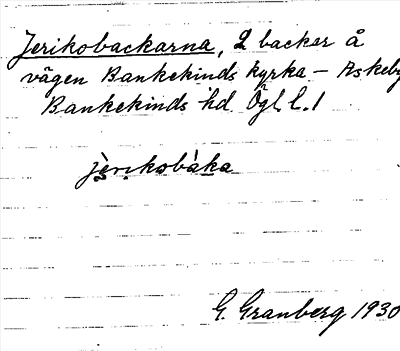 Jerikobackarna, 2 backar å
vägen Bankekinds kyrka – Askeby
Bankekinds hd Ögl. l.
jèrikobàka
G. Granberg 1930